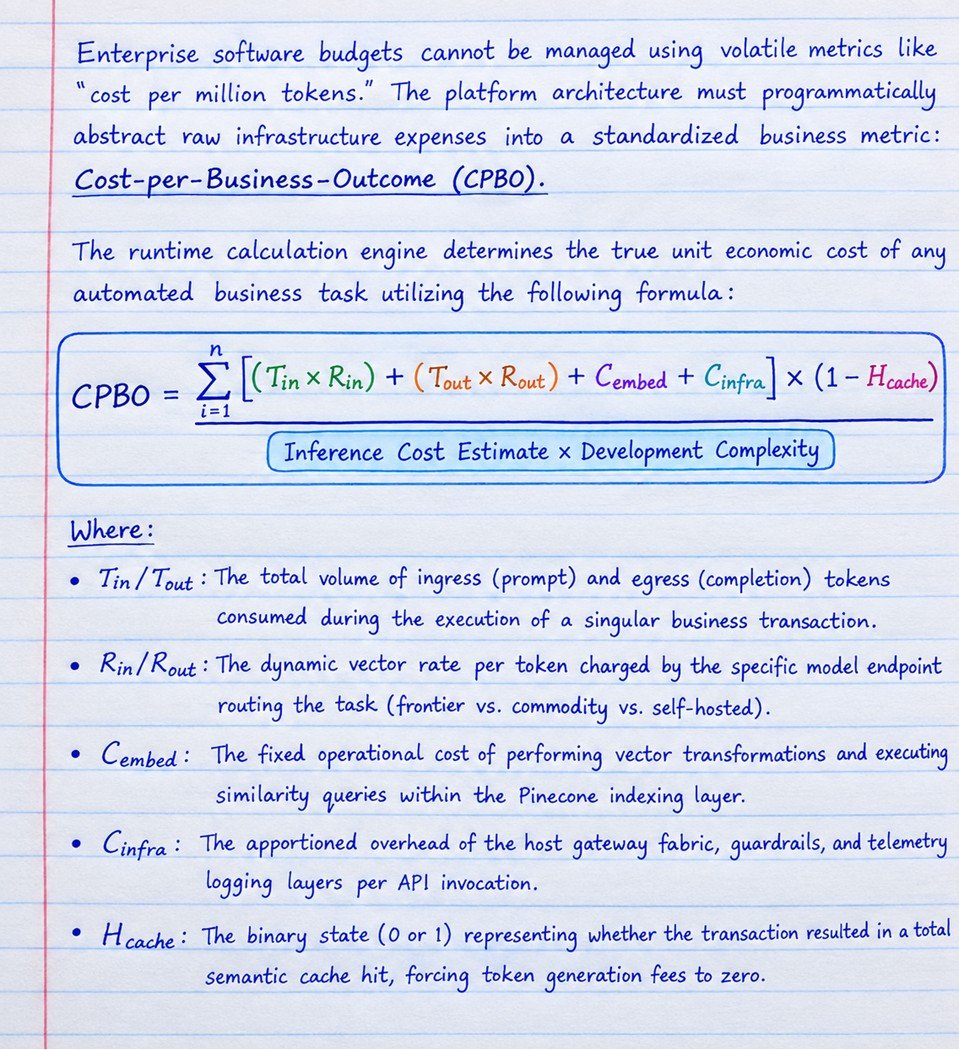 Enterprise software budgets cannot be managed using volatile metrics like
"cost per million tokens." The platform architecture must programmatically
abstract raw infrastructure expenses into a standardized business metric:
Cost-per-Business-Outcome (CPBO).
The runtime calculation engine determines the true unit economic cost of any
automated business task utilizing the following formula:
CPBO = ∑ n i=1 [(Tin × Rin) + (Tout × Rout) + Cembed + Cinfra] × (1 - Hcache)
Inference Cost Estimate × Development Complexity
Where:
• Tin/Tout: The total volume of ingress (prompt) and egress (completion) tokens
consumed during the execution of a singular business transaction.
• Rin/Rout: The dynamic vector rate per token charged by the specific model endpoint
routing the task (frontier vs. commodity vs. self-hosted).
• Cembed: The fixed operational cost of performing vector transformations and executing
similarity queries within the Pinecone indexing layer.
• Cinfra: The apportioned overhead of the host gateway fabric, guardrails, and telemetry
logging layers per API invocation.
• Hcache: The binary state (0 or 1) representing whether the transaction resulted in a total
semantic cache hit, forcing token generation fees to zero.